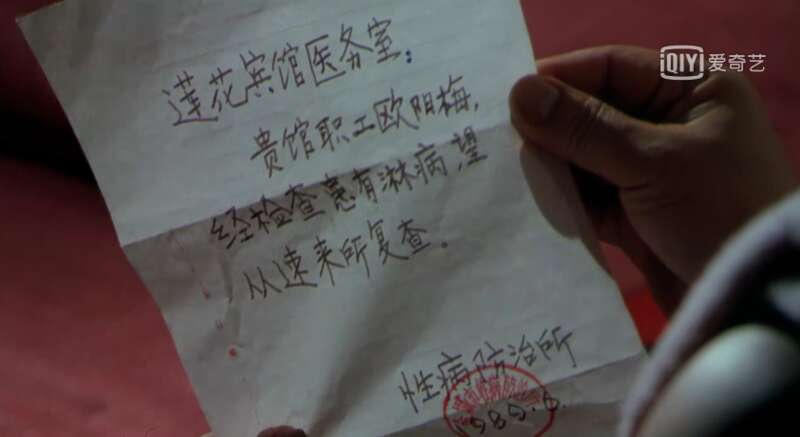 iQIYI 爱奇艺
莲花宾馆医务室：
贵馆职工欧阳梅，
经检查患有淋病，望
从速来所复查。
性病防治所